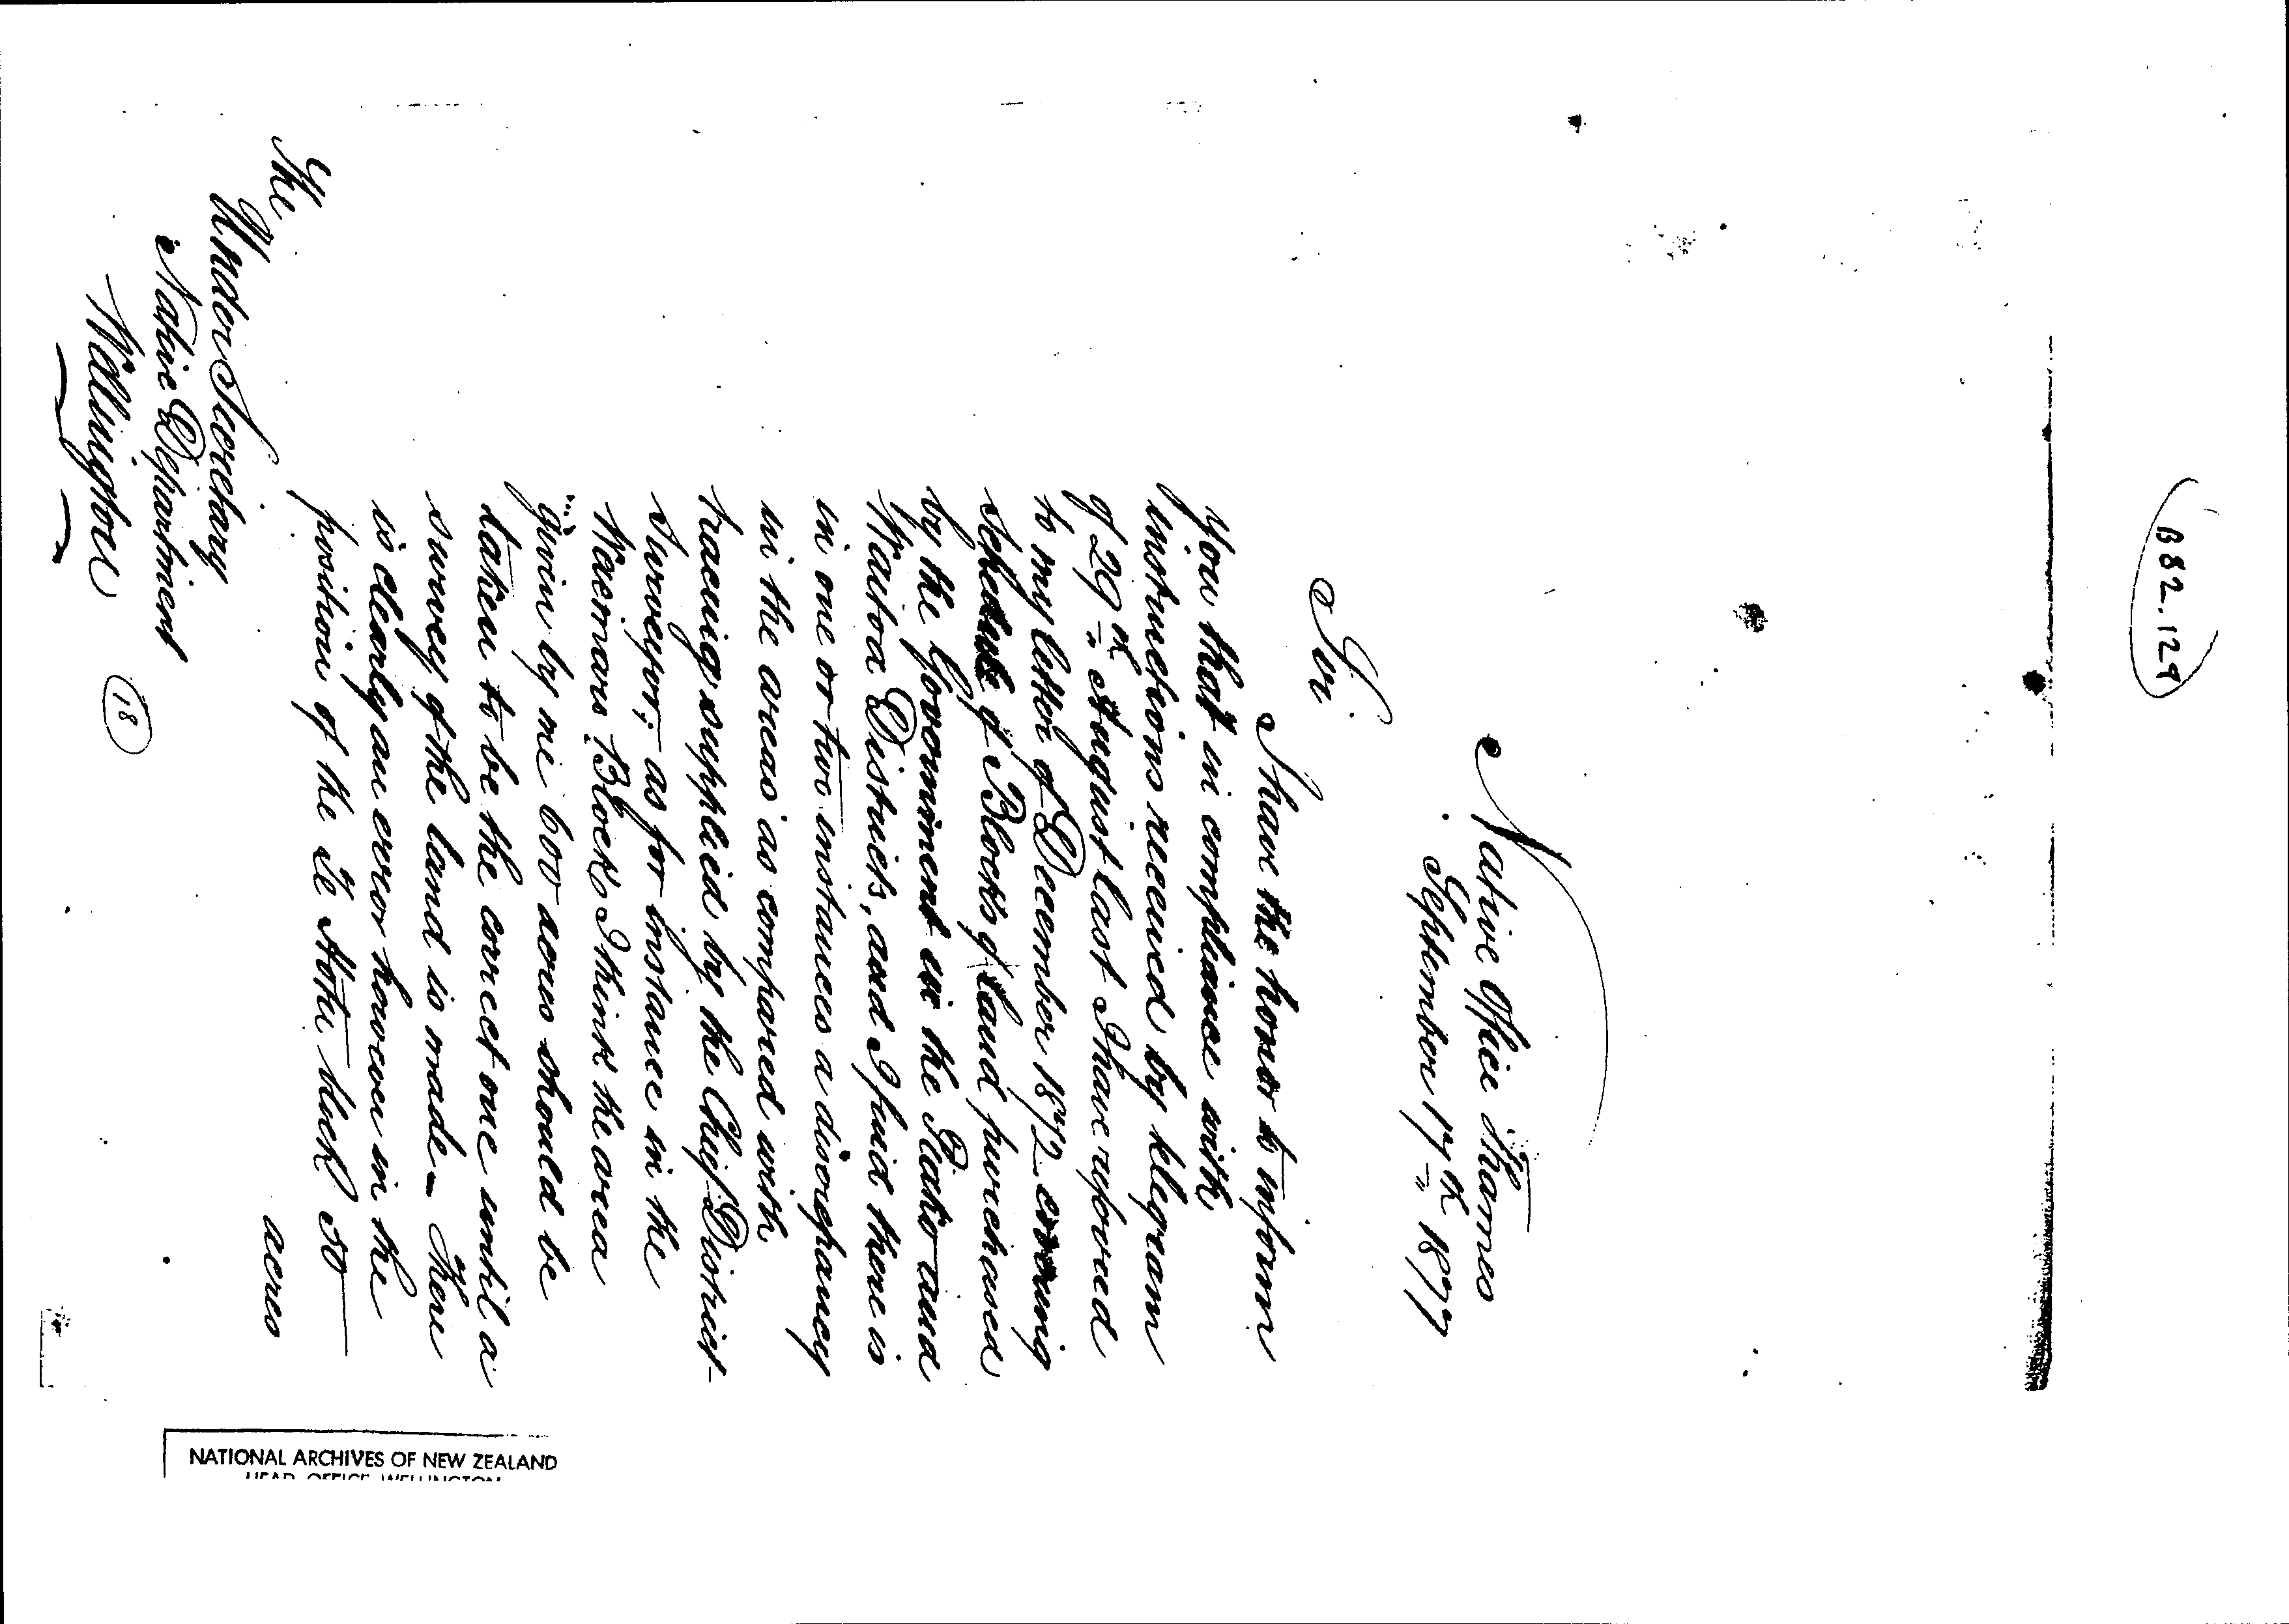 B82.129
Native Office Thames
September 17th 1877
Sir
I have the honor to inform
you that in compliance with
instructions received by telegram
of 29th August last I have referred
to my letter of December 1872 covering
Schedule of Blocks of Land purchased
by the Government in the Piako and
Waitoa Districts, and I find there is
in one or two instances a discrepancy
in the areas as compared with
tracing supplied by the Chief District
Surveyor; as for instance in the
Block I think the area
given by me 600 acres should be
taken to be the correct one until a
survey of the land is made - There
is clearly an error however in the
position of the Te block 50
acres
The
Under Secretary
Native Department
Wellington
18
NATIONAL ARCHIVES OF NEW ZEALAND
HEAD OFFICE WELLINGTON